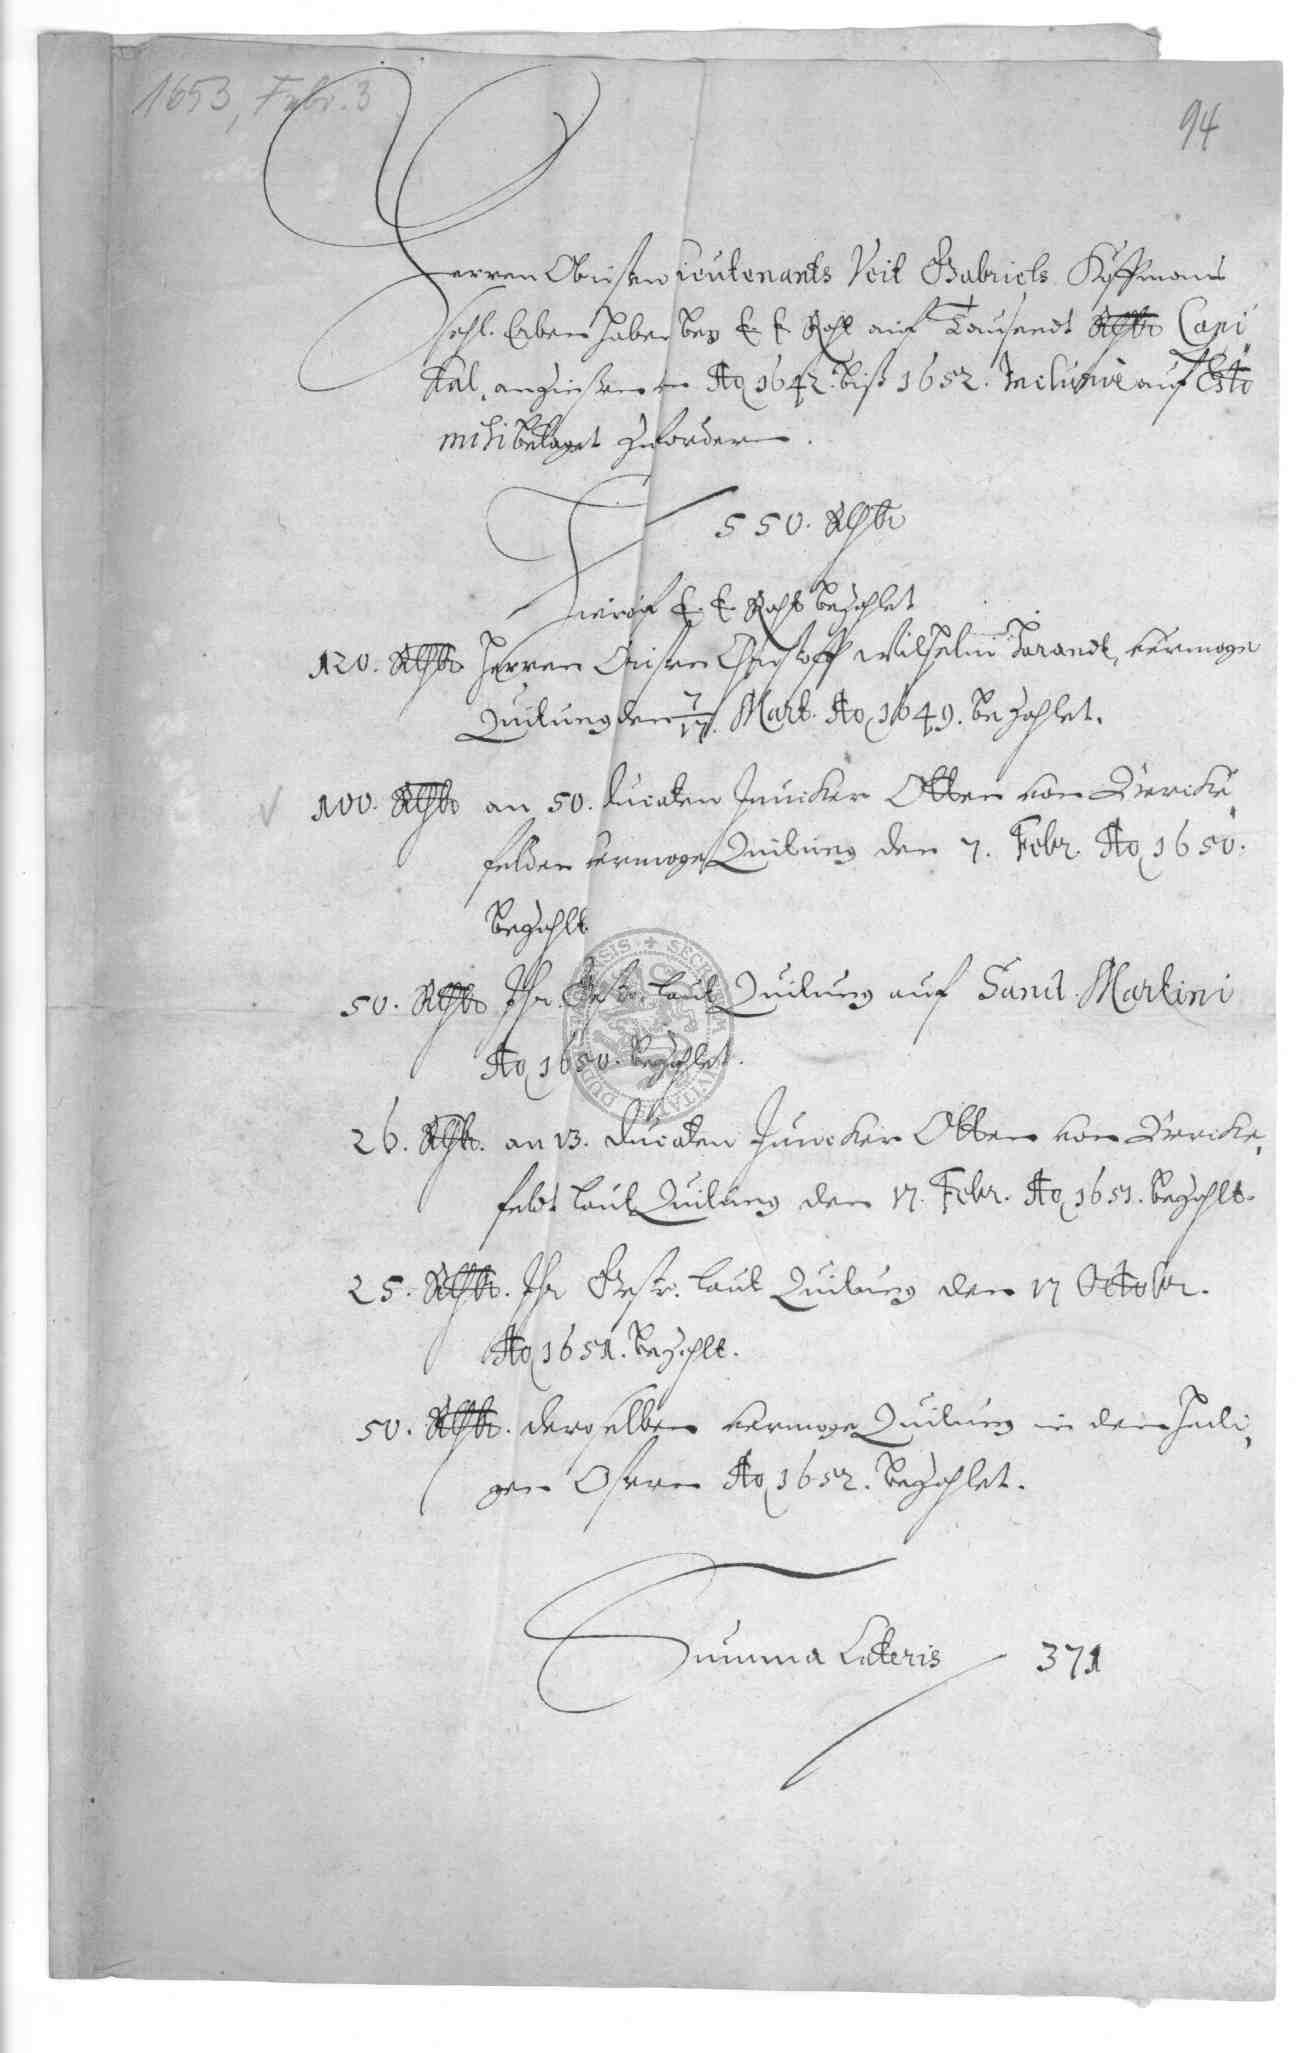 1653, Febr. 3
94
Herren Obristen Lieutenants Veit Gabriels Koffmans
sehl. Erben haben bey E. E. Raht auf Tausendt Rthlr Capi
tal, an Zinsen von Ao 1642. biß 1652. Inclusive auf Esto
mihi betaget zufordern.
550. Rthlr
Hierauf E. E. Raht bezahlet
120. Rthlr Herren Obristen Christoff Wilhelm Tarandt, vermoge
Quitung den 7/17. Mart. Ao 1649. bezahlet.
100. Rthlr an 50. Ducaten Juncker Otten von Bercke
felden vermoge Quitung den 7. Febr. Ao 1650.
bezahlt
50. Rthlr Ihr. Gestr. laut Quitung auf Sanct. Martini
Ao 1650. bezahlet.
26. Rthlr. an 13. Ducaten Juncker Otten von Bercke,
feldt laut Quitung den 17. Febr. Ao 1651. bezahlt.
25. Rthlr. Ihr Gestr. laut Quitung den 17 Octobr.
Ao 1651. bezahlt.
50. Rthlr. deroselben vermoge Quitung in den heili,
gen Ostern Ao 1652. bezahlet.
Summa Lateris 371